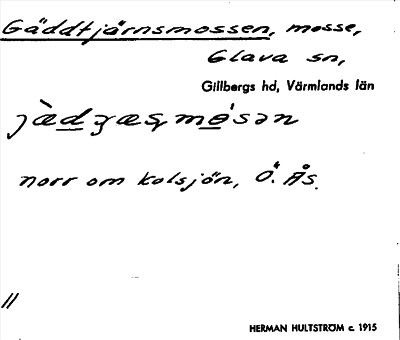 Gäddtjärnsmossen, mosse,
Glava sn,
Gillbergs hd, Värmlands län
norr om Kolsjön, Ö. Ås.
HERMAN HULTSTRÖM c. 1915